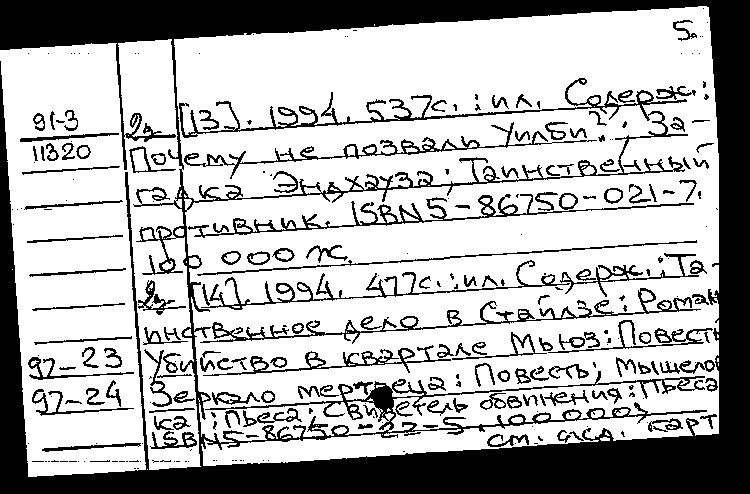 5.
91-3 2э [13]. 1994. 537с. : ил. Содерж.:
11320 Почему не позвали Уилби?; За-
гадка Эндхауза; Таинственный
противник. ISBN 5-86750-021-7.
100 000 эк.
2э [14]. 1994. 477с. : ил. Содерж.: Та-
инственное дело в Стайлзе: Роман
97-23 Убийство в квартале Мьюз: Повесть
97-24 Зеркало мертвеца: Повесть; Мышелов
ка: Пьеса; Свидетель обвинения: Пьеса
ISBN 5-86750-22-5. 100 000э
см. след. карт